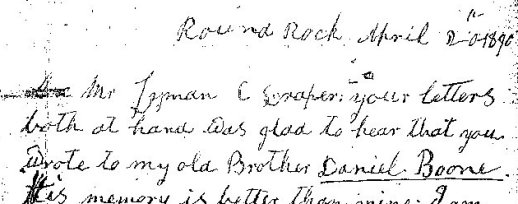 Round Rock April 20th 1890
Mr Lyman C Draper: your letters
both at hand was glad to hear that you
wrote to my old Brother Daniel Boone.
His memory is better than mine: I am